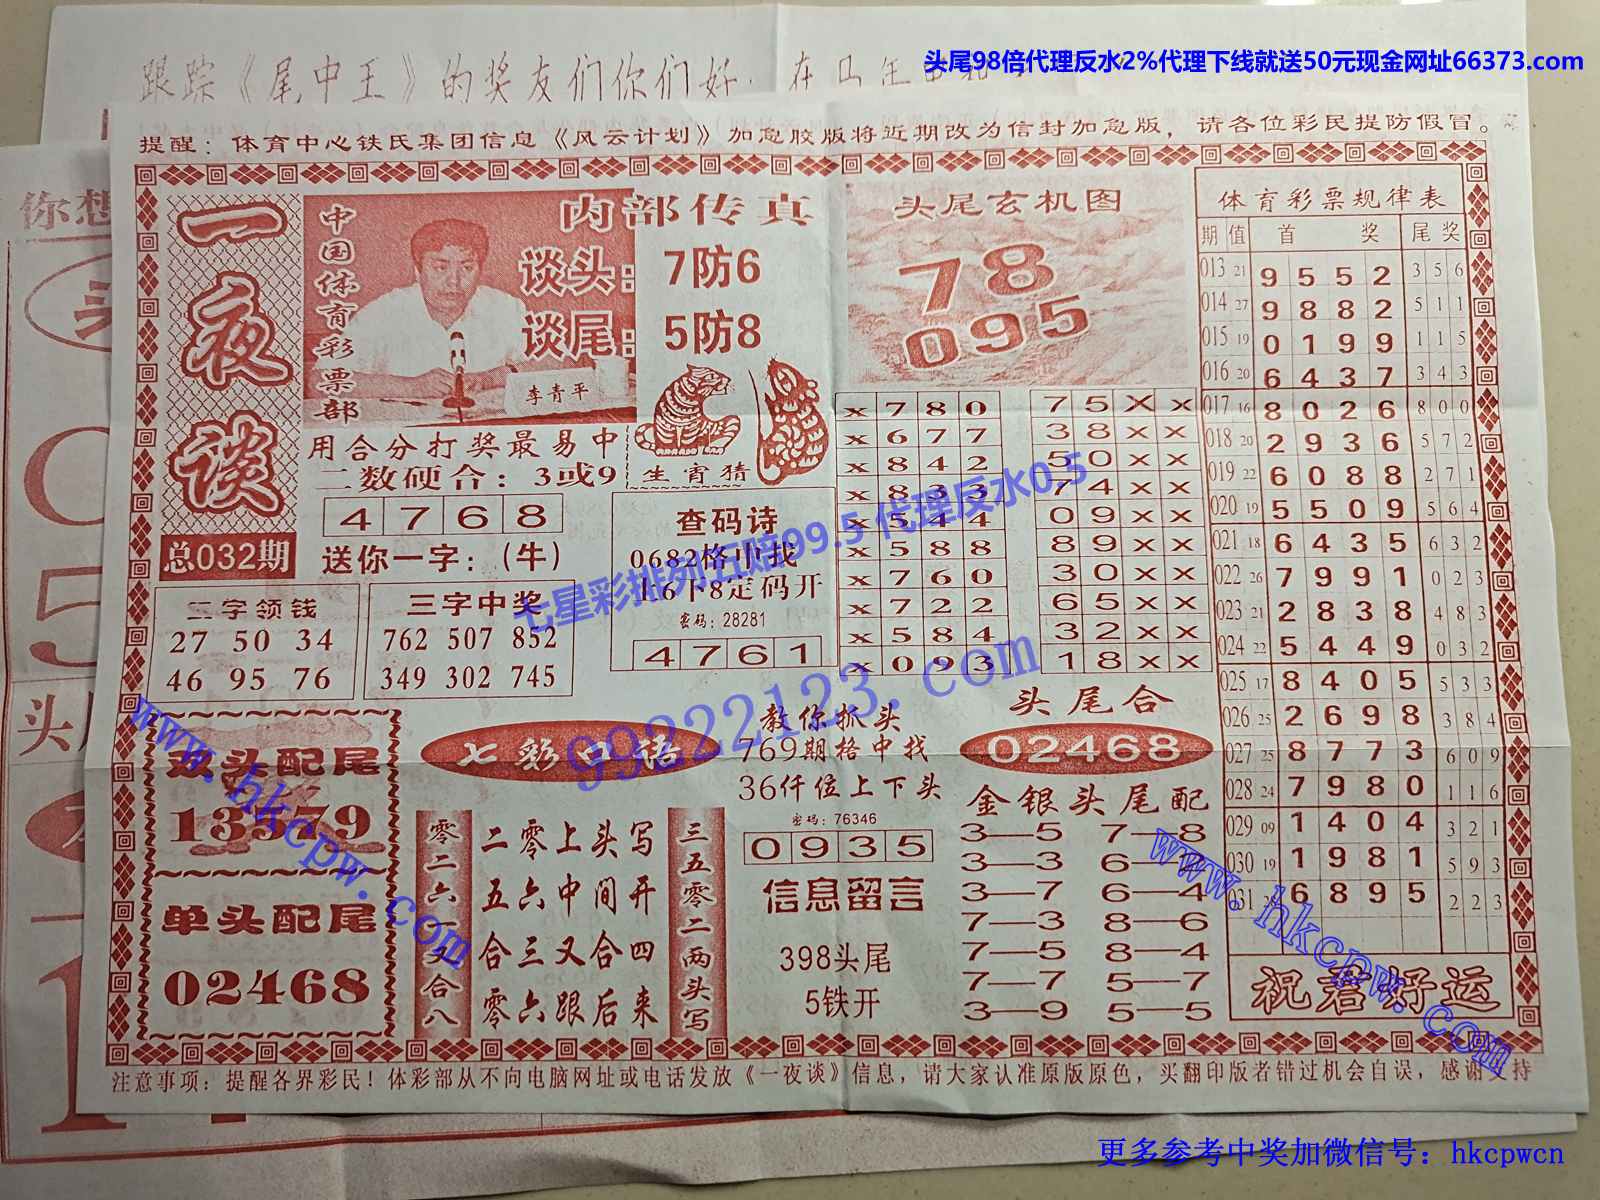 头尾98倍代理反水2%代理下线就送50元现金网址66373.com
跟踪《尾中王》的奖友们你们好
提醒：体育中心铁氏集团信息《风云计划》加急胶版将近期改为信封加急版，请各位彩民提防假冒。
你想
一夜谈
总032期
中国体育彩票部
内部传真
谈头：7防6
谈尾：5防8
李青平
用合分打奖最易中
二数硬合：3或9
4 7 6 8
送你一字：（牛）
生宵猜
二字领钱
27 50 34
46 95 76
三字中奖
762 507 852
349 302 745
查码诗
0682格中找
上6下8定码开
密码：28281
4 7 6 1
头尾玄机图
78
095
x 7 8 0
x 6 7 7
x 8 4 2
x 8 3 3
x 5 4 4
x 5 8 8
x 7 6 0
x 7 2 2
x 5 8 4
x 0 9 3
7 5 X x
3 8 x x
5 0 x x
7 4 x x
0 9 x x
8 9 x x
3 0 x x
6 5 x x
3 2 x x
1 8 x x
双头配尾
13579
单头配尾
02468
七彩口语
零二六一又合八
二零上头写
五六中间开
合三又合四
零六跟后来
三五零二两头写
教你抓头
769期格中找
36仟位上下头
密码：76346
0 9 3 5
信息留言
398头尾
5铁开
头尾合
02468
金银头尾配
3—5 7—8
3—3 6—2
3—7 6—4
7—3 8—6
7—5 8—4
7—7 5—7
3—9 5—5
体育彩票规律表
期 值 首 奖 尾 奖
013 21 9 5 5 2 3 5 6
014 27 9 8 8 2 5 1 1
015 19 0 1 9 9 1 1 5
016 20 6 4 3 7 3 4 3
017 16 8 0 2 6 8 0 0
018 20 2 9 3 6 5 7 2
019 22 6 0 8 8 2 7 1
020 19 5 5 0 9 5 6 4
021 18 6 4 3 5 6 3 2
022 26 7 9 9 1 0 2 3
023 21 2 8 3 8 4 8 3
024 22 5 4 4 9 0 3 2
025 17 8 4 0 5 5 3 3
026 25 2 6 9 8 3 8 4
027 25 8 7 7 3 6 0 9
028 24 7 9 8 0 1 1 6
029 09 1 4 0 4 3 2 1
030 19 1 9 8 1 5 9 3
031 6 8 9 5 2 2 3
祝君好运
注意事项：提醒各界彩民！体彩部从不向电脑网址或电话发放《一夜谈》信息，请大家认准原版原色，买翻印版者错过机会自误，感谢支持
七星彩排列五赔99.5 代理反水0.5
99222123.com
www.hkcpw.com
www.hkcpw.com
更多参考中奖加微信号：hkcpwcn